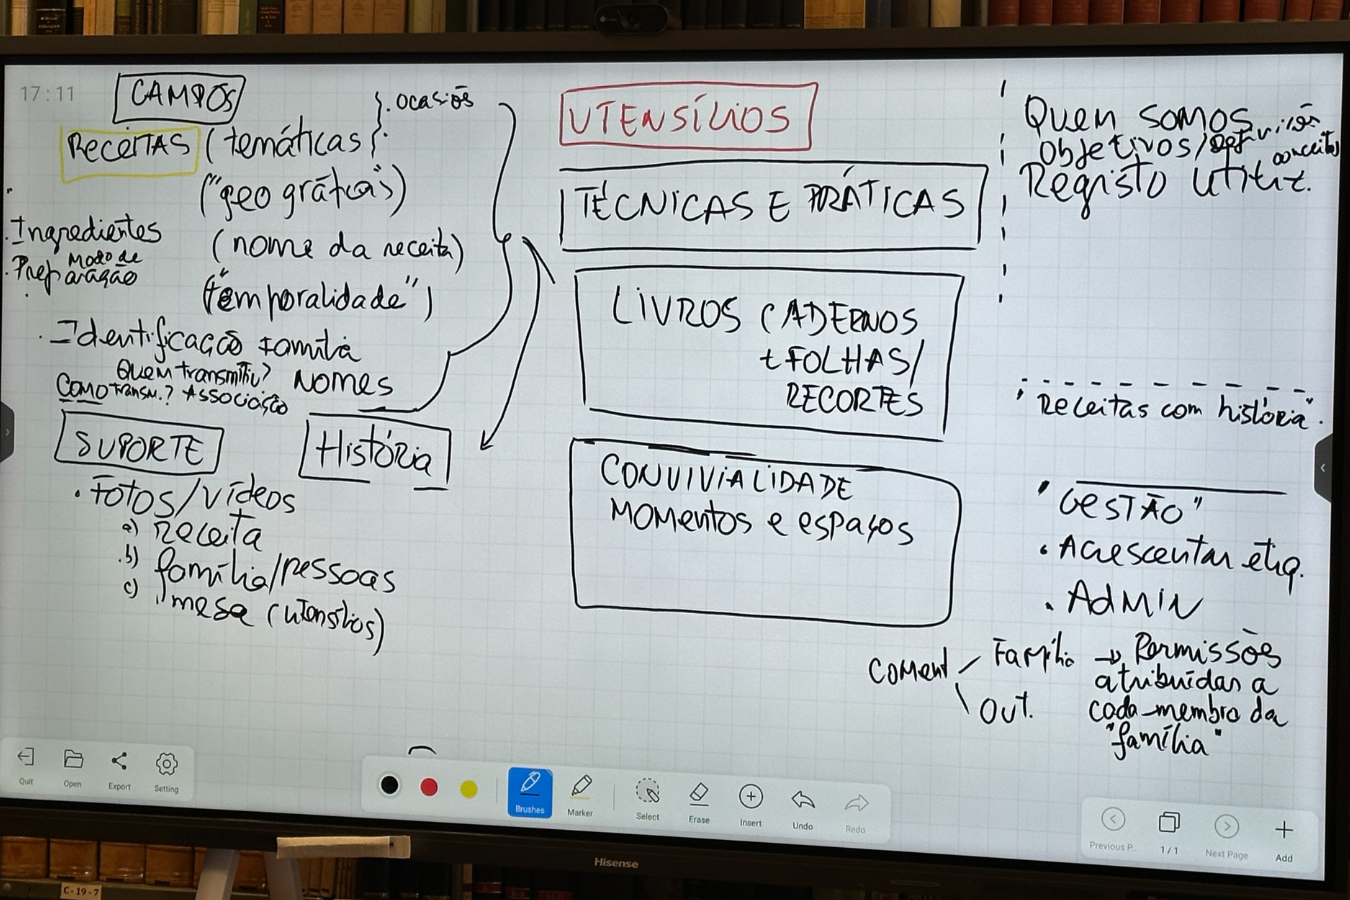 17:11
CAMPOS
RECEITAS (temáticas } . ocasiões
("geográficas")
(nome da receita)
("temporalidade")
. Ingredientes
. Modo de
Preparação
. Identificação família
Quem transmitiu? Nomes
Como transm.? Associação
SUPORTE
História
. Fotos/vídeos
a) Receita
b) família/pessoas
c) mesa (utensílios)
UTENSÍLIOS
TÉCNICAS E PRÁTICAS
LIVROS CADERNOS
+ FOLHAS/
RECORTES
CONVIVIALIDADE
MOMENTOS e espaços
Quem somos
Objetivos/definição
conceitos
Registo utiliz.
"Receitas com história".
"GESTÃO"
. Acrescentar etiq.
. ADMIN
Coment / Família → Permissões
\ Out.
atribuídas a
cada membro da
"família"
Quit
Open
Export
Setting
Brushes
Marker
Select
Erase
Insert
Undo
Redo
Previous P...
1/1
Next Page
Add
Hisense
C-19-7